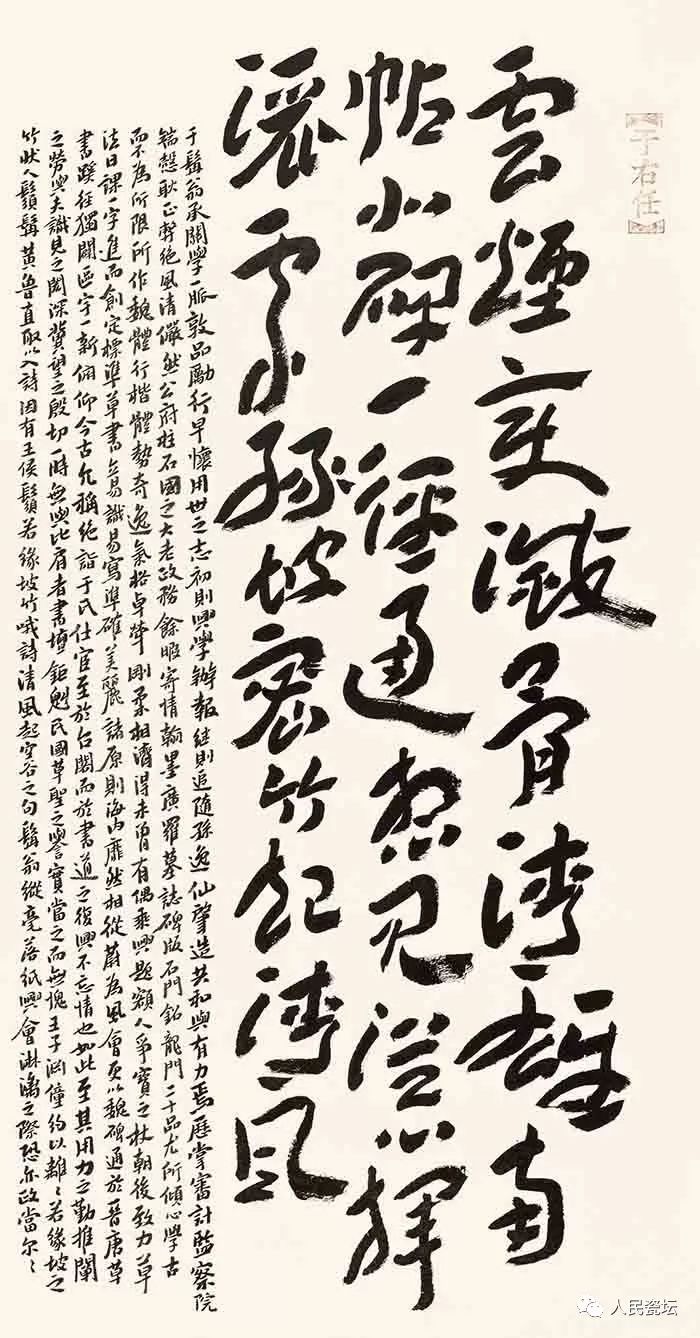 【于右任】
雲煙變滅骨清雄南
帖北碑一徑通想見從心揮
灑處緣坡密竹起清風
于髯翁承關學一脈敦品勵行早懷用世之志初則興學辦報繼則追隨孫逸仙肇造共和與有力焉歷掌審計監察院
端愨耿正弊絕風清儼然公府柱石國之大老政務餘暇寄情翰墨廣羅墓誌碑版石門銘龍門二十品尤所傾心學古
而不為所限所作魏體行楷體勢奇逸氣格卓犖剛柔相濟得未曾有偶乘興題額人爭寶之杖朝後致力草
法日課一字進而創定標準草書立易識易寫準確美麗諸原則海內靡然相從蔚為風會更以魏碑通於晉唐草
書蹊徑獨闢區宇一新俯仰今古允稱絕詣于氏仕宦至於台閣而於書道之復興不忘情也如此至其用力之勤推闡
之勞與夫識見之閎深冀望之殷切一時無與比肩者書壇鉅魁民國草聖之譽實當之而無愧王子淵僮約以離〻若緣坡之
竹狀人鬚髯黃魯直取以入詩因有王侯鬚若緣坡竹哦詩清風起空谷之句髯翁縱毫落紙興會淋漓之際恐亦政當尔〻
人民瓷坛